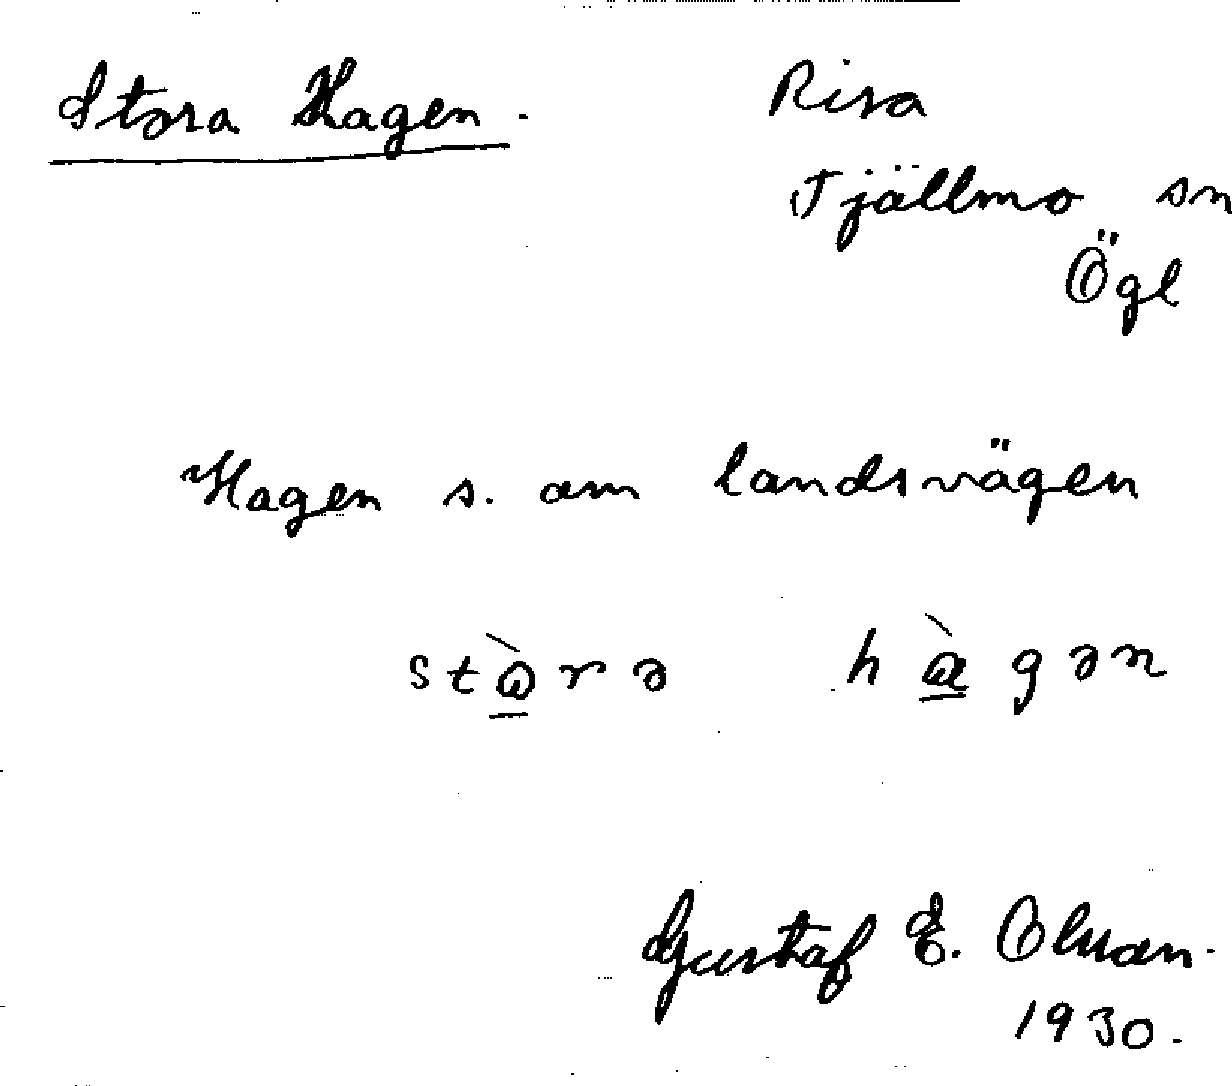 Stora Hagen.
Risa
Tjällmo sn
Ögl
Hagen s. om landsvägen
stὼrə hàgən
Gustaf E. Olsson.
1930.